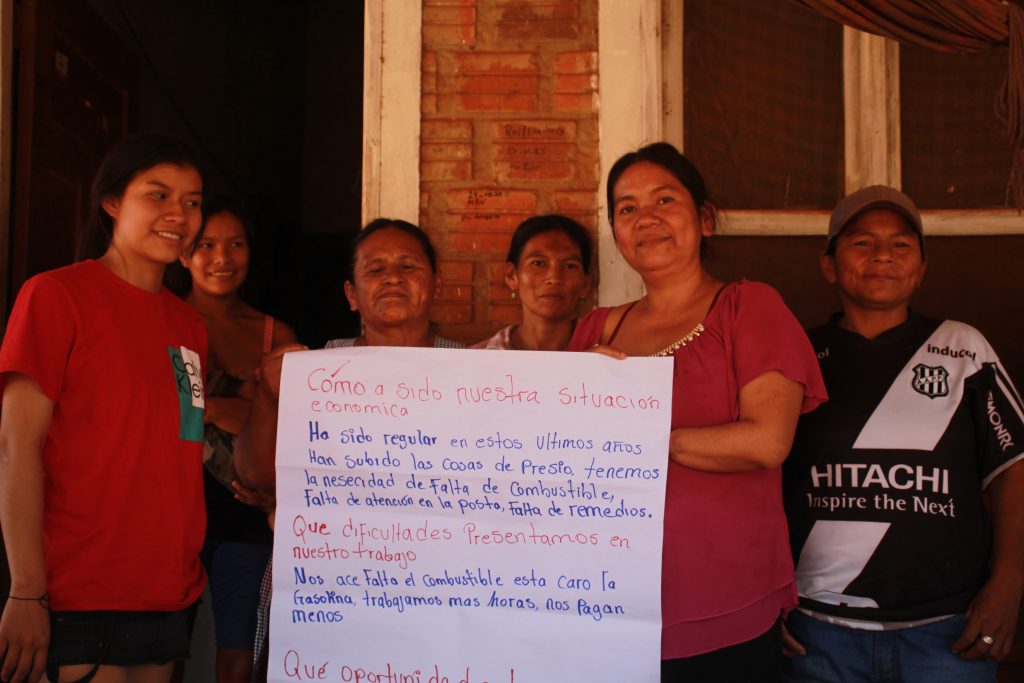 Cómo a sido nuestra situación
economica
Ha sido regular en estos ultimos años
Han subido las cosas de Presio, tenemos
la nesecidad de Falta de Combustible,
Falta de atención en la posta, Falta de remedios.
Que dificultades Presentamos en
nuestro trabajo
Nos ace Falta el combustible esta caro la
Gasolina, trabajamos mas horas, nos Pagan
menos
Qué
Calvin
Klein
inducol
HITACHI
Inspire the Next